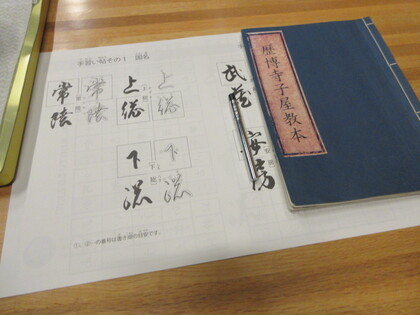 手習い帖その1 国名
武蔵
安房
上総
上総
下総
下総
常陸
常陸
歴博寺子屋教本